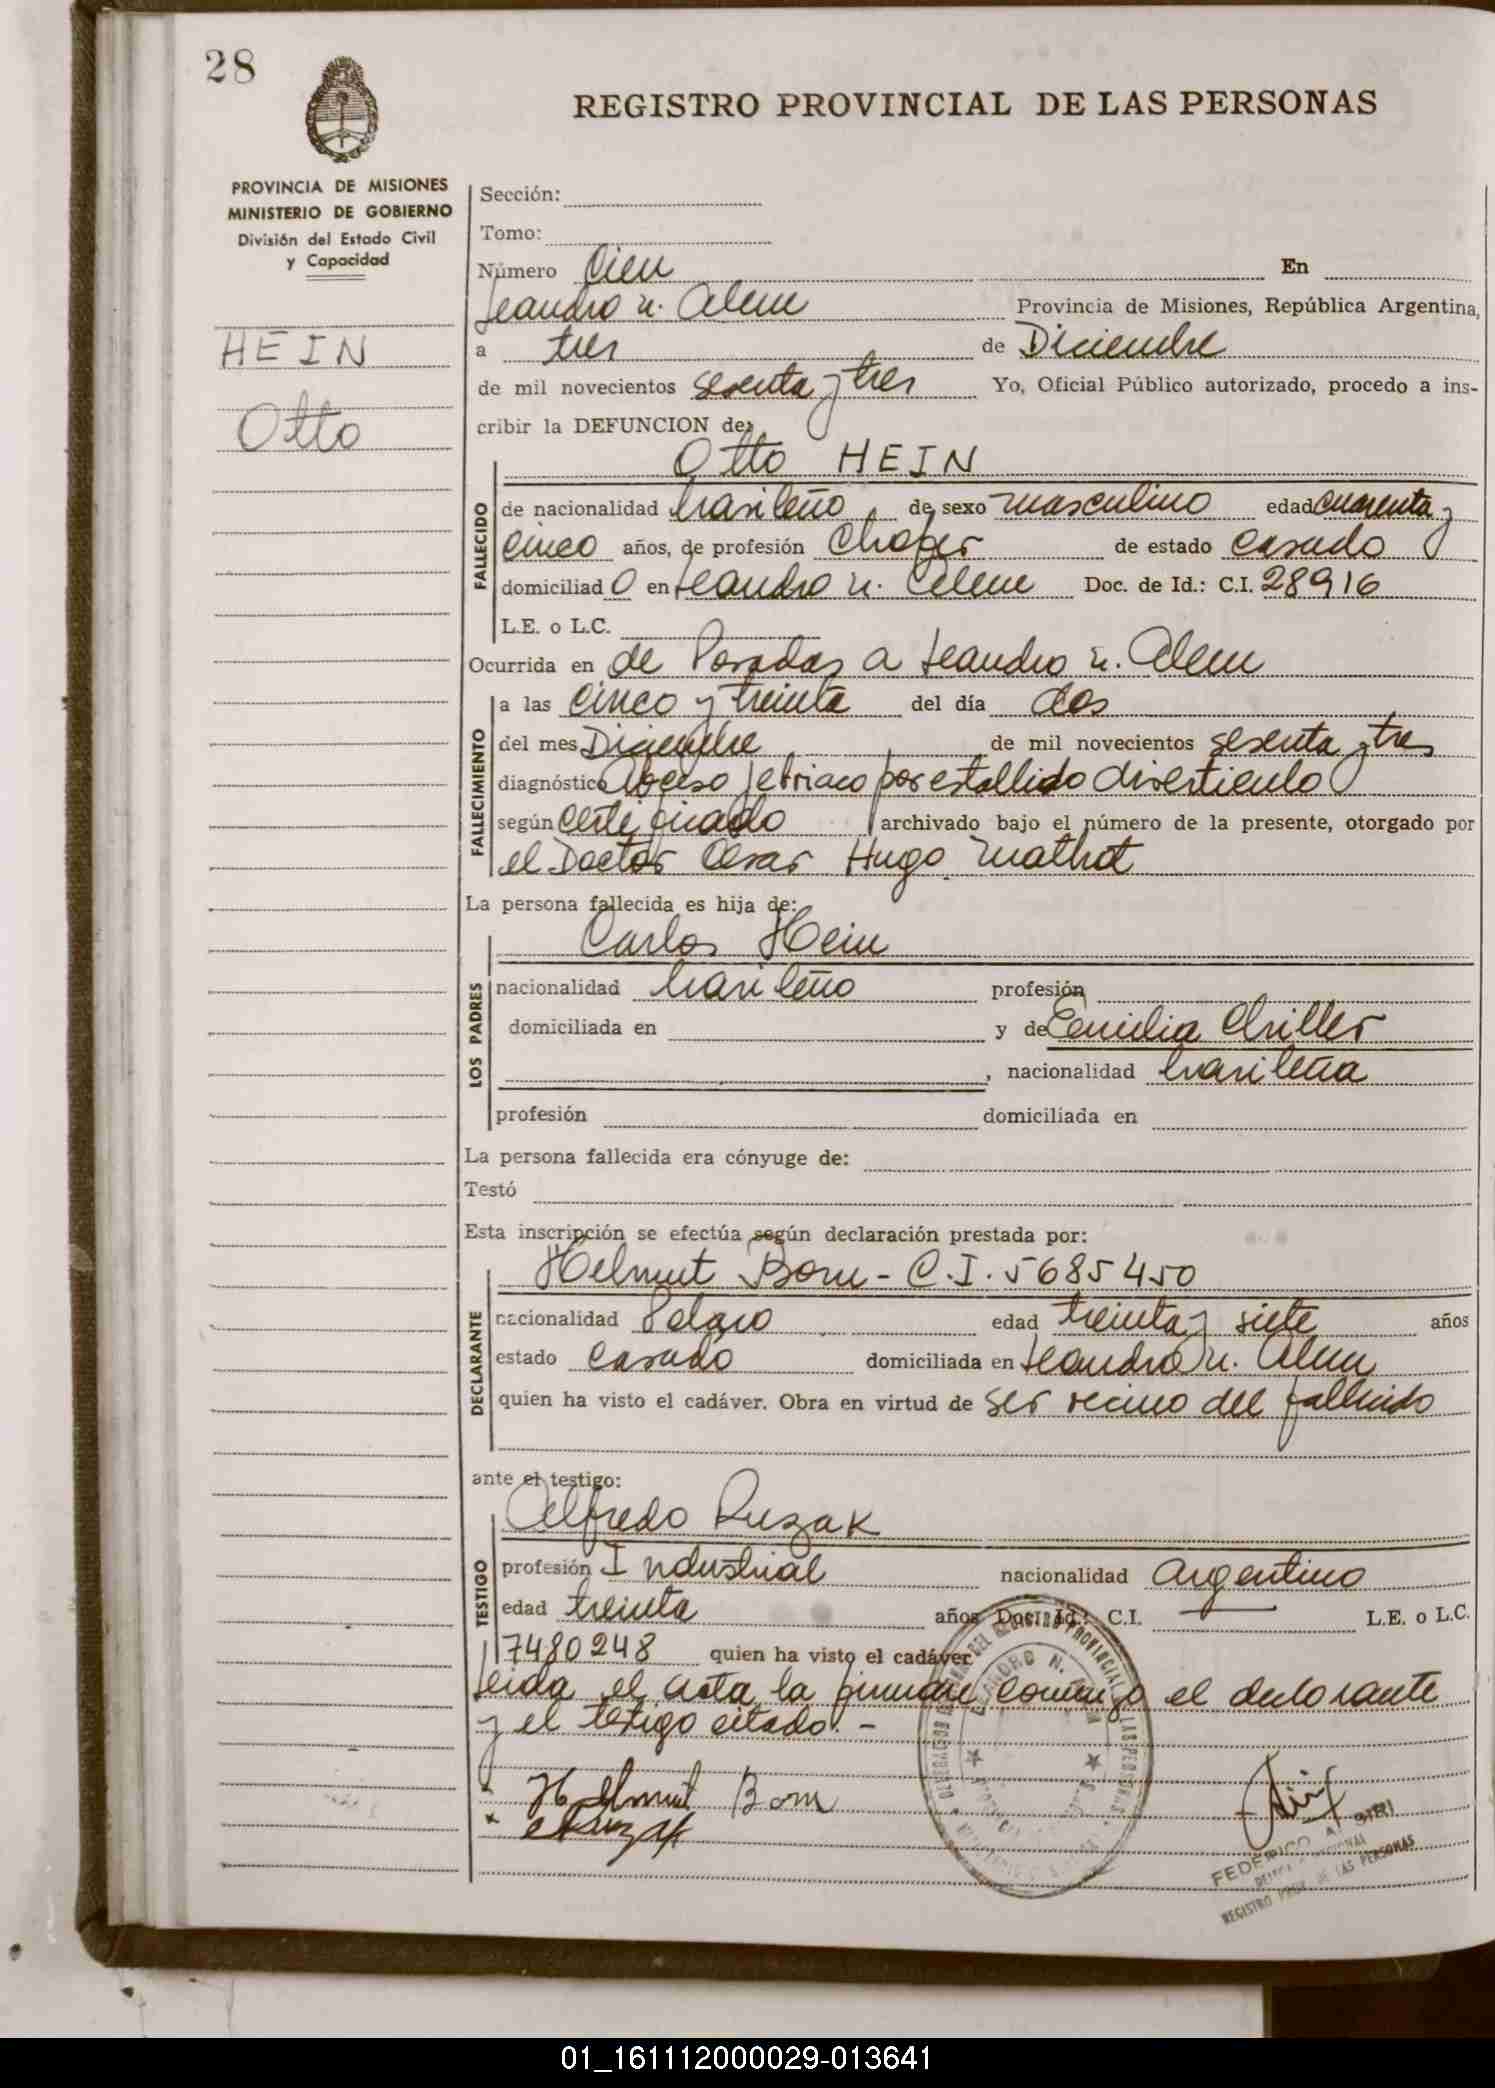 28
REGISTRO PROVINCIAL DE LAS PERSONAS
PROVINCIA DE MISIONES
MINISTERIO DE GOBIERNO
División del Estado Civil
y Capacidad
HEIN
Otto
Sección:
Tomo:
Número Cien En
Leandro N. Alem Provincia de Misiones, República Argentina,
a tres de Diciembre
de mil novecientos sesenta y tres Yo, Oficial Público autorizado, procedo a ins-
cribir la DEFUNCION de:
Otto HEIN
FALLECIDO
de nacionalidad brasileño de sexo masculino edad cuarenta y
cinco años, de profesión Chofer de estado casado
domiciliado en Leandro N. Alem Doc. de Id.: C.I. 28916
L.E. o L.C.
Ocurrida en de Posadas a Leandro N. Alem
FALLECIMIENTO
a las cinco y treinta del día dos
del mes Diciembre de mil novecientos sesenta y tres
diagnóstico Abceso por estallido diverticulo
según certificado archivado bajo el número de la presente, otorgado por
el Doctor Cesar Hugo Mathot
La persona fallecida es hija de:
Carlos Hein
LOS PADRES
nacionalidad brasileño profesión
domiciliada en y de Emilia Chiller
, nacionalidad brasileña
profesión domiciliada en
La persona fallecida era cónyuge de:
Testó
Esta inscripción se efectúa según declaración prestada por:
Helmut Born - C.I. 5685450
DECLARANTE
nacionalidad Polaco edad treinta y siete años
estado casado domiciliada en Leandro N. Alem
quien ha visto el cadáver. Obra en virtud de ser vecino del fallecido
ante el testigo:
Alfredo Ruzak
TESTIGO
profesión Industrial nacionalidad argentino
edad treinta años Doc. Id.: C.I. L.E. o L.C.
7480248 quien ha visto el cadáver
Leida el acta la firman conmigo el declarante
y el testigo citado. -
Helmut Born
FEDERICO A.
REGISTRO PROV. DE LAS PERSONAS
01_161112000029-013641